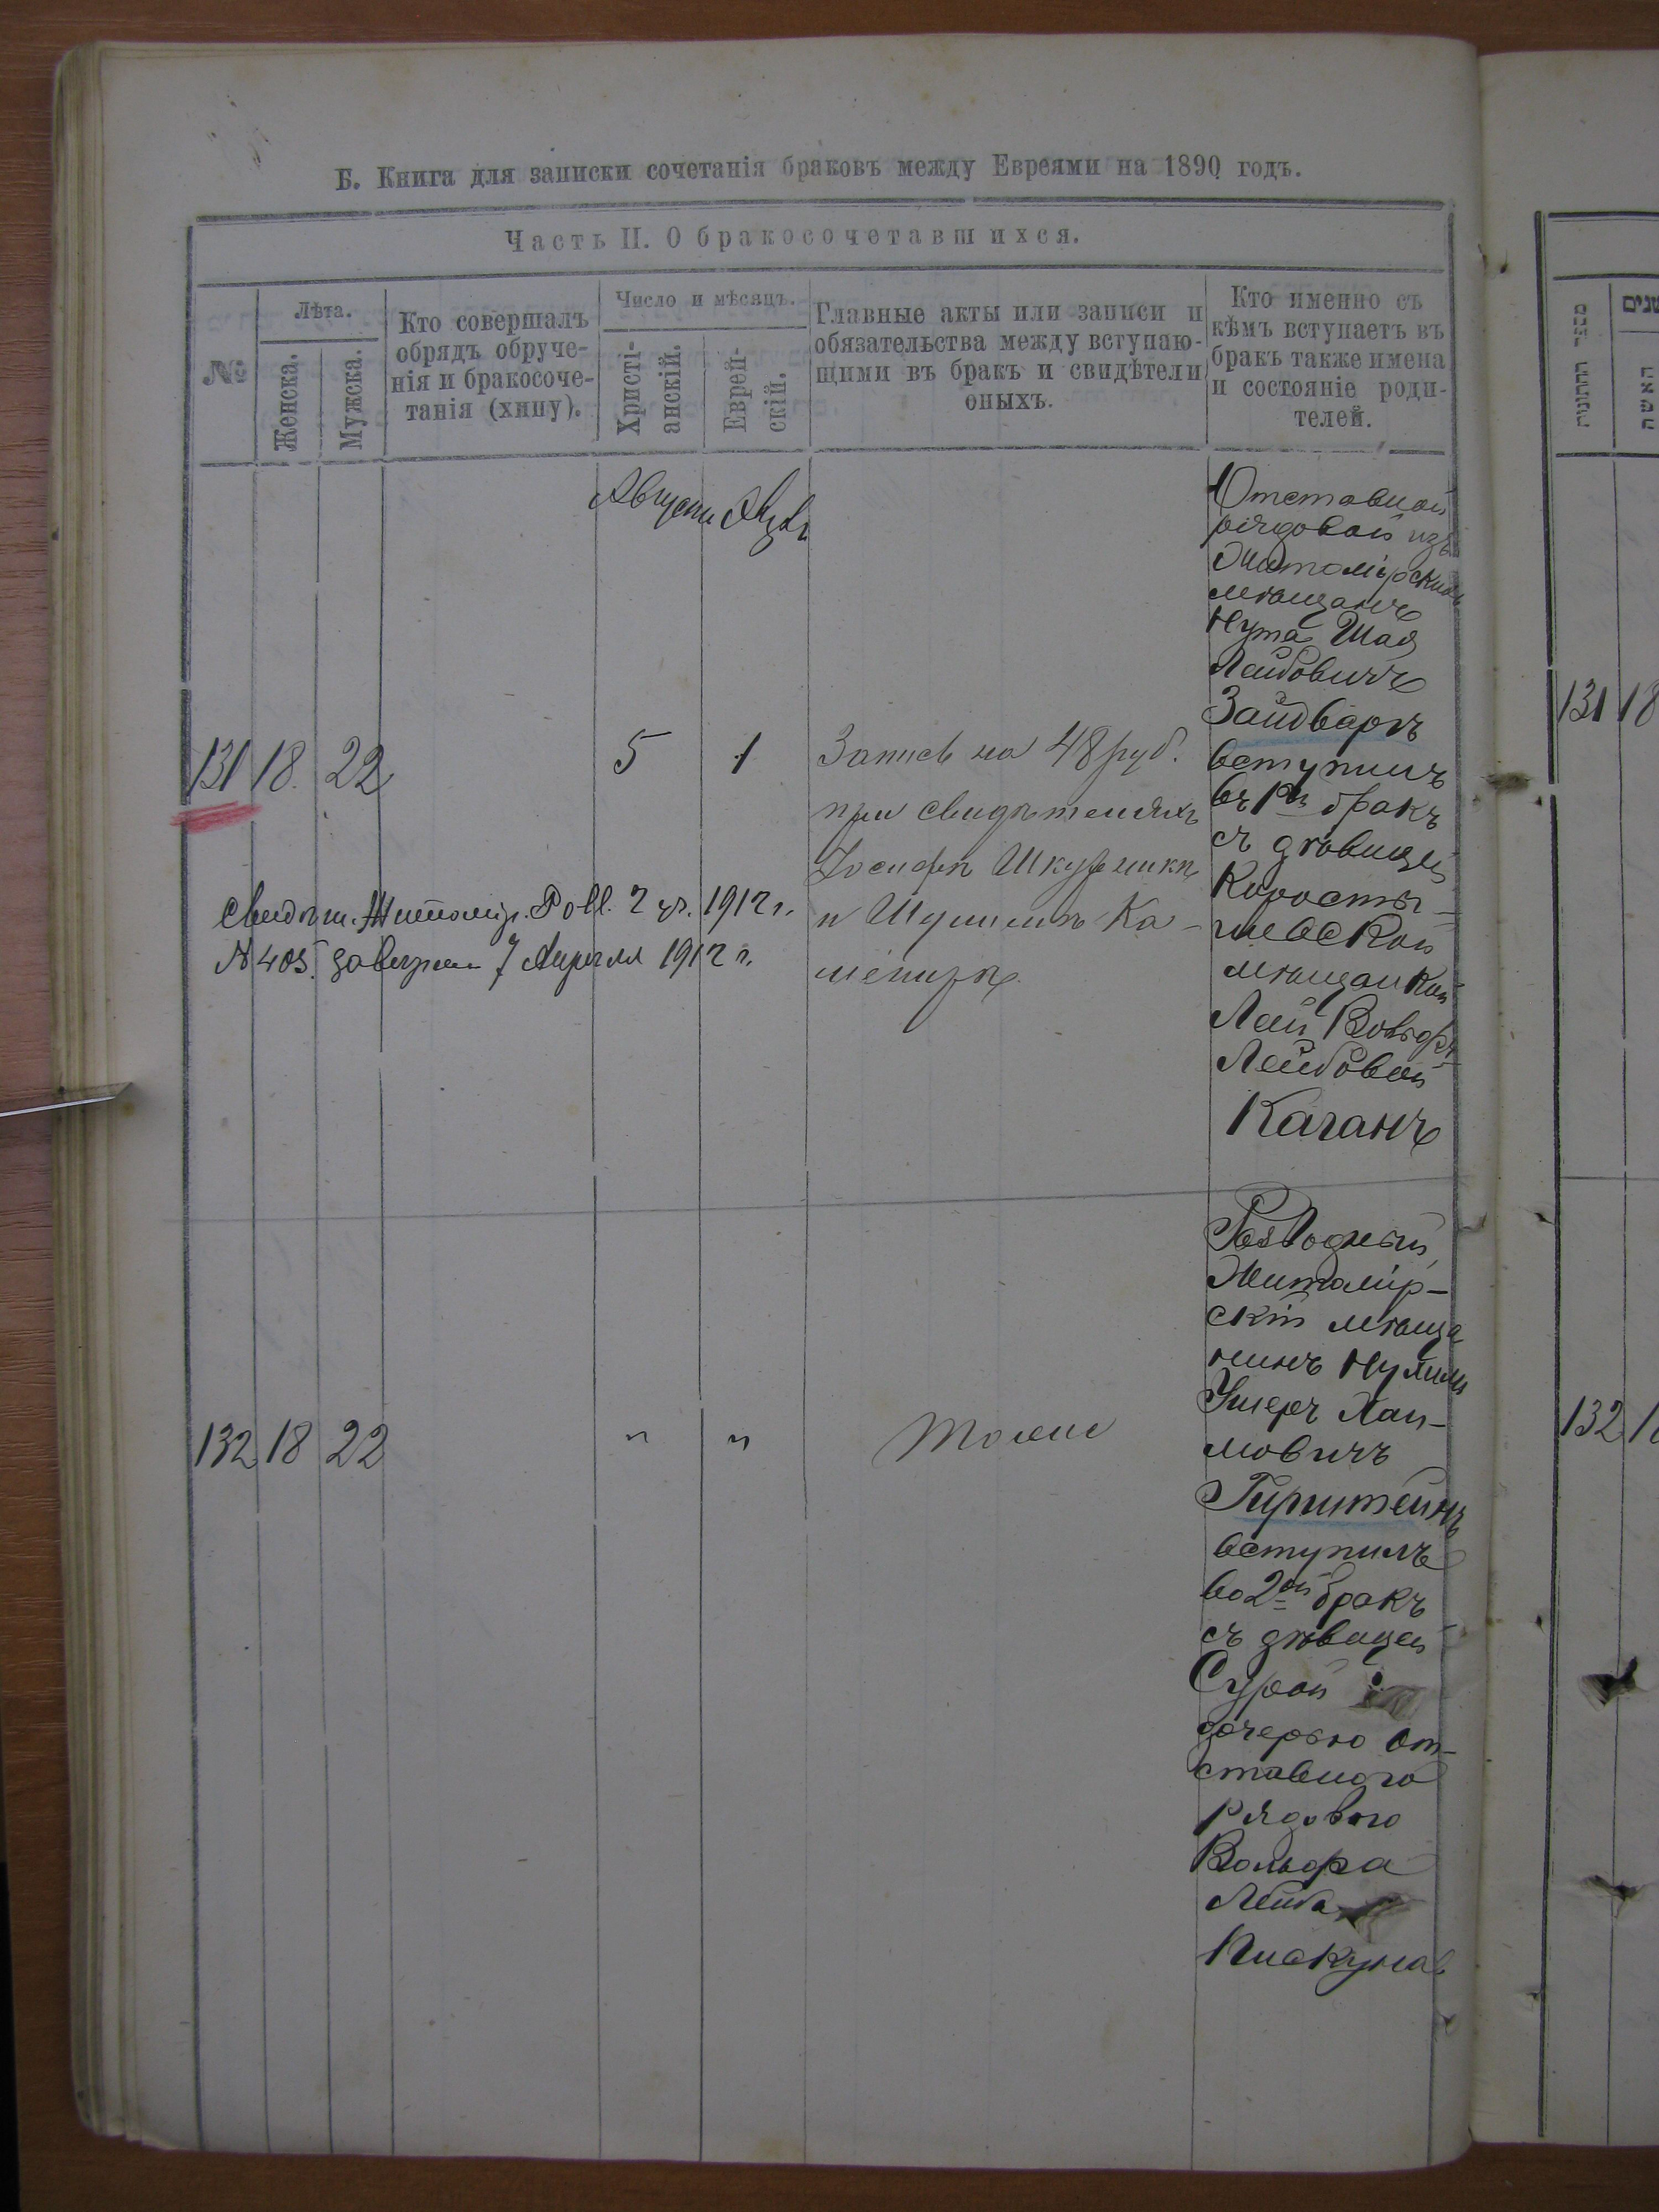 Б. Книга для записки сочетанія браковъ между Евреями на 1890 годъ.
Часть II. О бракосочетавшихся.
№
Лѣта.
Женска.
Мужска.
Кто совершалъ
обрядъ обруче-
нія и бракосоче-
танія (хипу).
Число и мѣсяцъ.
Христі-
анскій.
Еврей-
скій.
Главные акты или записи и
обязательства между вступаю-
щими въ бракъ и свидѣтели
оныхъ.
Кто именно съ
кѣмъ вступаетъ въ
бракъ также имена
и состояніе роди-
телей.
Августъ
131 18. 22 5 1
Запись на 48 руб.
при свидѣтеляхъ
и Ка-
Отставной
рядовой изъ
Житомірскихъ
мѣщанъ
Нута Шая
Лейбовичъ
Зайдваргъ
вступилъ
въ 1й бракъ
съ дѣвицей
Коросты-
шевской
мѣщанкой
Леи
Лейбовой
Каганъ
Житомір. 2 1912 г.
№ 405. 7 Апрѣля 1912 г.
132 18 22 " "
Тоже
Разводный
Житомір-
скій мѣща
нинъ
Ушеръ Хаи-
мовичъ
Гирштейнъ
вступилъ
во 2ой бракъ
съ дѣвицей
Сурой
дочерью от-
ставного
рядового
Вольфа
Лейба
מספר החתונות
האשה
131 18
132